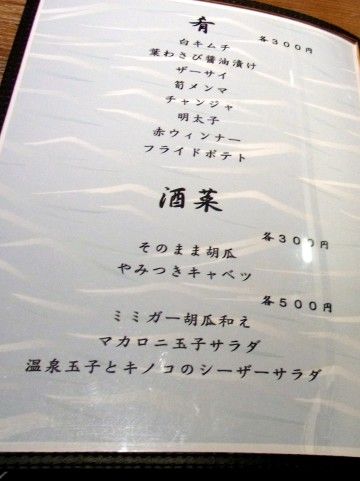 肴
各300円
白キムチ
葉わさび醤油漬け
ザーサイ
筍メンマ
チャンジャ
明太子
赤ウィンナー
フライドポテト
酒菜
各300円
そのまま胡瓜
やみつきキャベツ
各500円
ミミガー胡瓜和え
マカロニ玉子サラダ
温泉玉子とキノコのシーザーサラダ